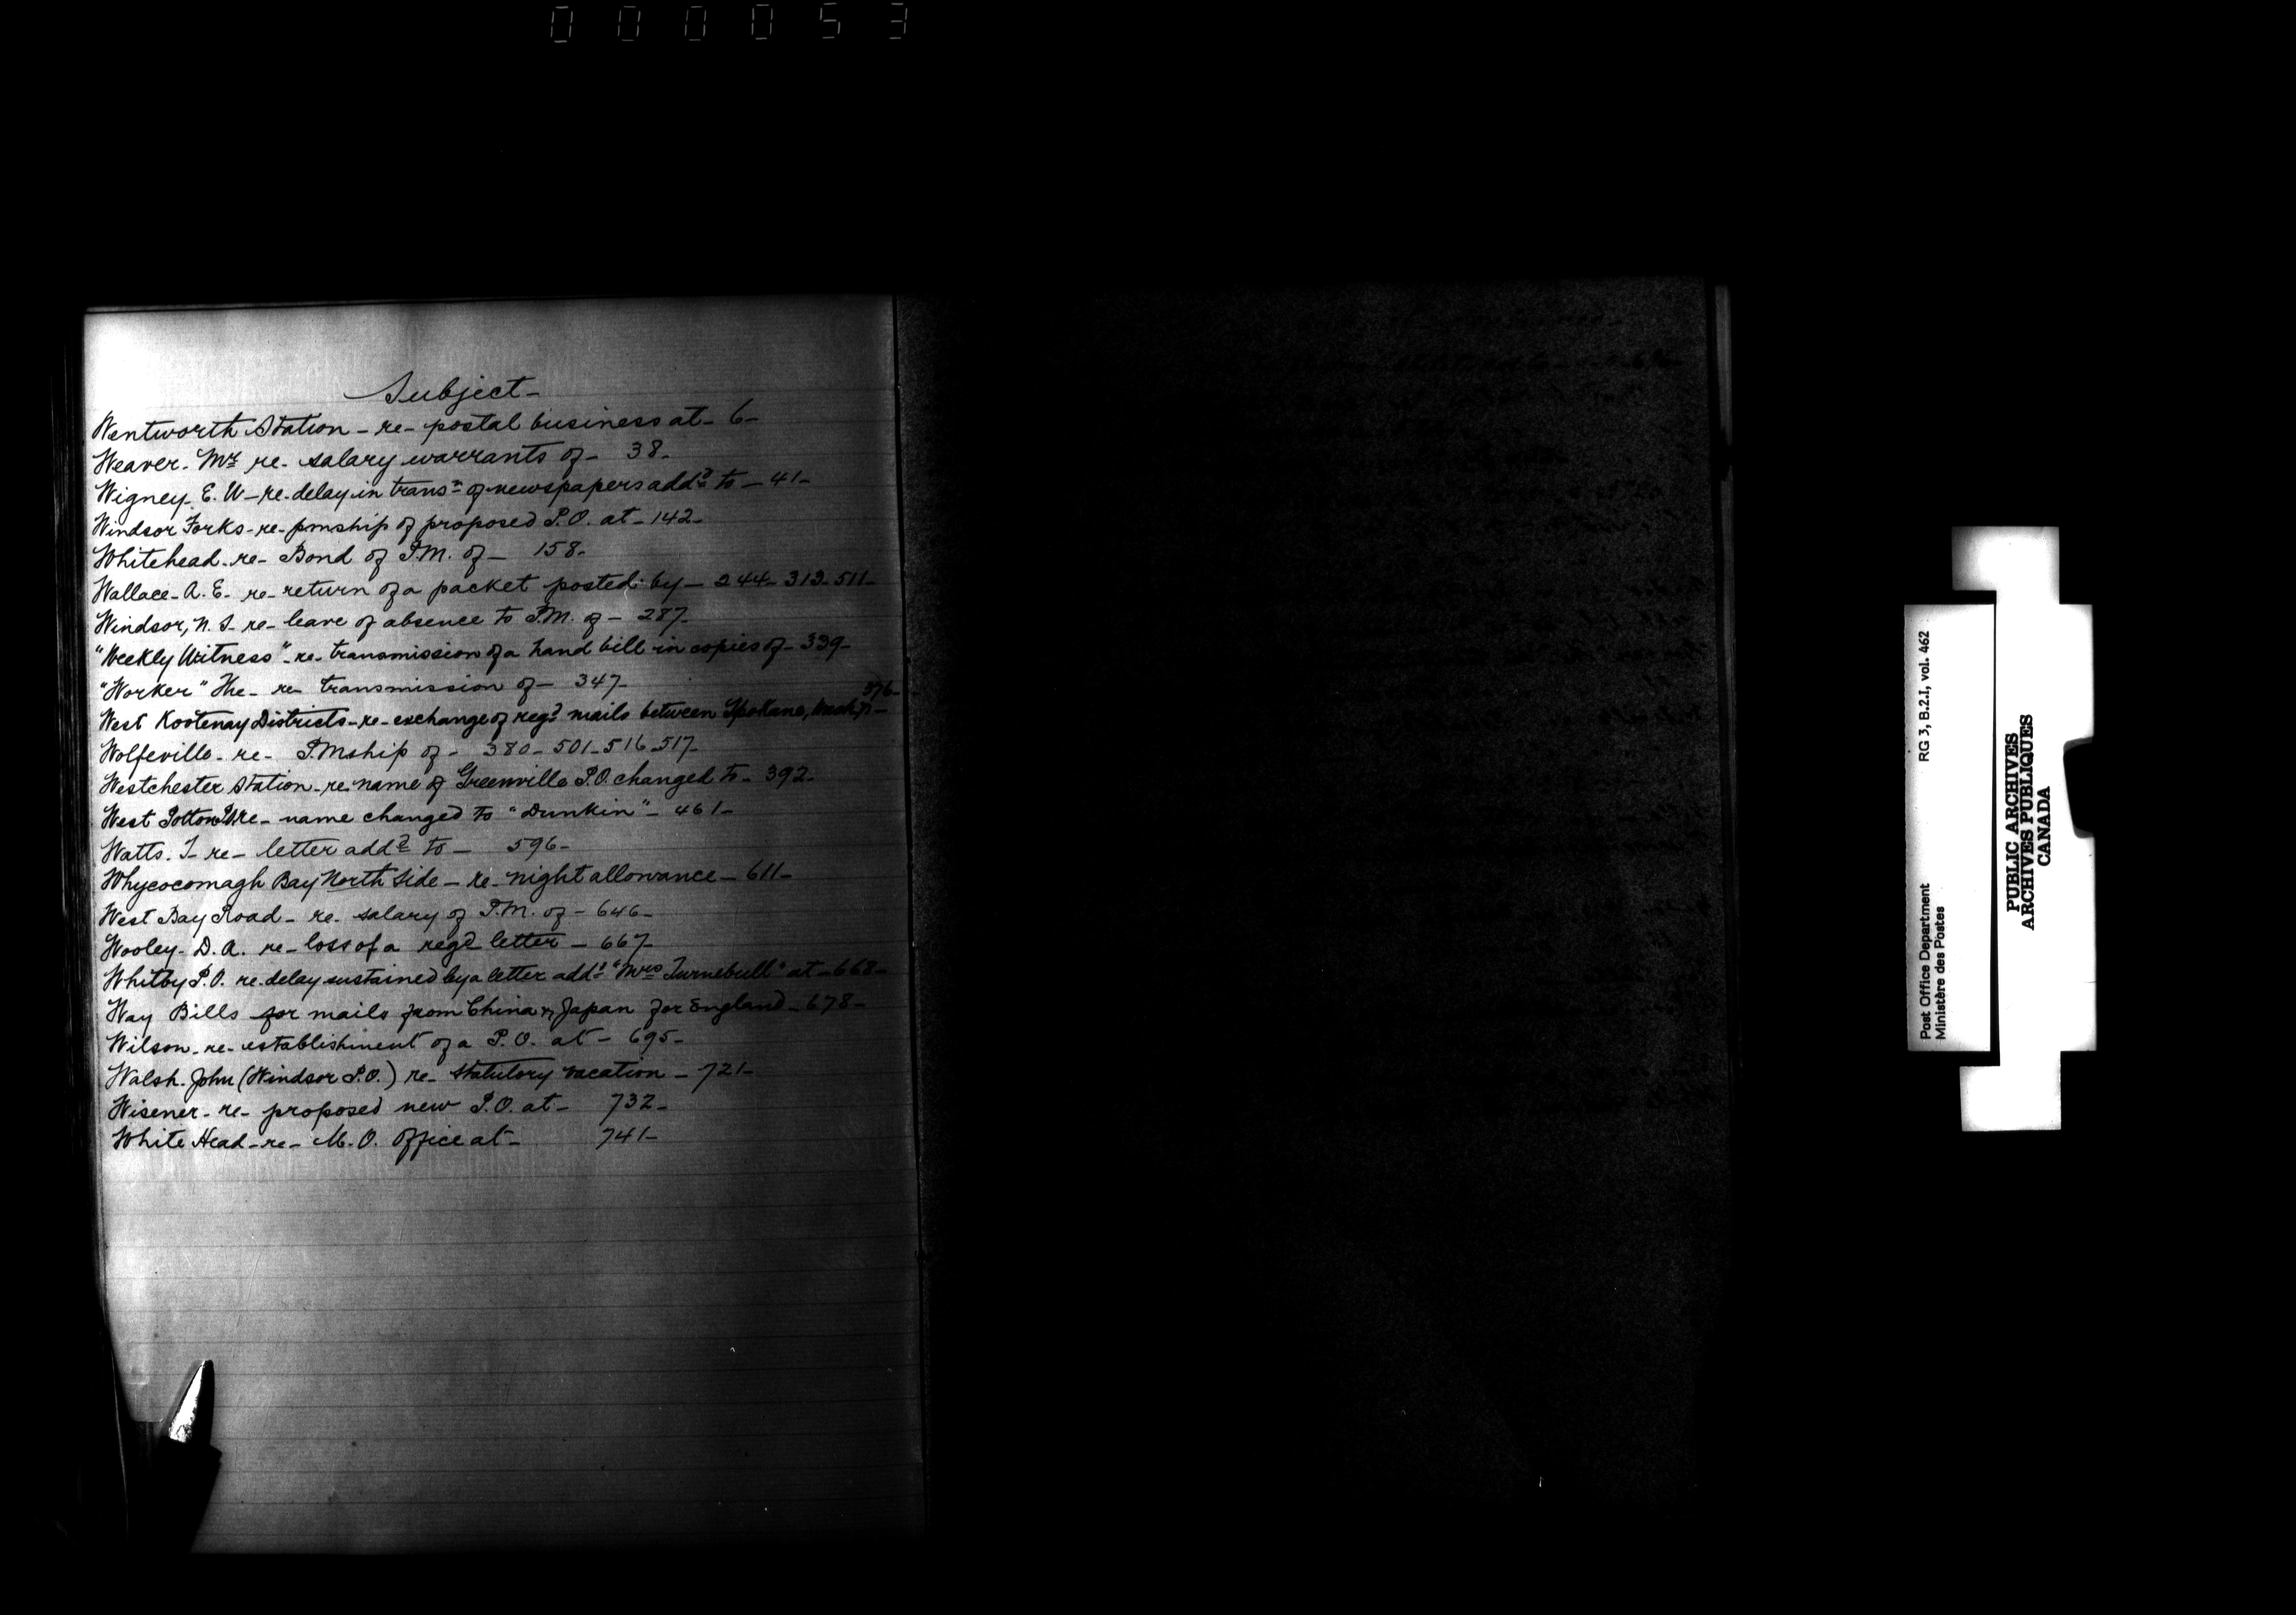 000053
Subject-
Wentworth Station - re - postal business at - 6 -
Weaver - Mr re - salary warrants of - 38 -
Wigney - E. W - re. delay in transn of newspapers addd to - 41 -
Windsor Forks - re - pmship of proposed P.O. at - 142 -
Whitehead - re - Bond of P.M. of - 158 -
Wallace - A. E. - re - return of a packet posted by - 244 - 312 - 511 -
Windsor, N. S. re - leave of absence to P.M. of - 287 -
"Weekly Witness" - re - transmission of a hand bill in copies of - 339 -
"Worker" The - re transmission of - 347 -
376 -
West Kootenay Districts - re - exchange of regd mails between Spokane, Wash,
Wolfeville - re - P.Mship of - 380 - 501 - 516 - 517 -
Westchester Station - re. name of Greenville P.O. changed to - 392 -
West Potton re - name changed to "Dunkin" - 461 -
Watts. T - re - letter addd to - 596 -
Whycocomagh Bay North Side - re - night allowance - 611 -
West Bay Road - re - salary of P.M. of - 646 -
Wooley - D. A. re - loss of a regd letter - 667 -
Whitby P.O. re. delay sustained by a letter addd "Mrs Turnebull" at - 668 -
Way Bills for mails from China & Japan for England - 678 -
Wilson - re - establishment of a P.O. at - 695 -
Walsh. John (Windsor P.O.) re - statutory vacation - 721 -
Wisener - re - proposed new P.O. at - 732 -
White Head - re - M. O. Office at - 741 -
Post Office Department RG 3, B.2.I, vol. 462
Ministère des Postes
PUBLIC ARCHIVES
ARCHIVES PUBLIQUES
CANADA